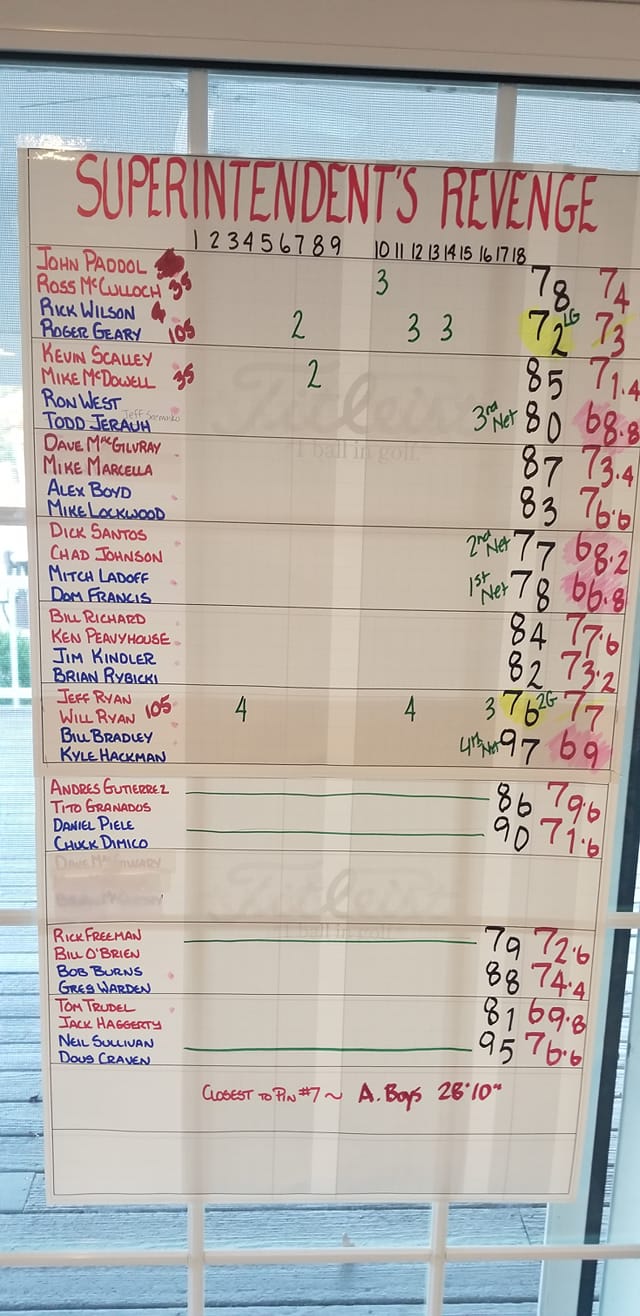 SUPERINTENDENT'S REVENGE
1 2 3 4 5 6 7 8 9 10 11 12 13 14 15 16 17 18
JOHN PADDOL
ROSS McCULLOCH 35 3 78 74
RICK WILSON
ROGER GEARY 105 2 3 3 72 1G 73
KEVIN SCALLEY
MIKE McDOWELL 35 2 85 71.4
RON WEST
TODD JERAUH Jeff 3rd Net 80 68.8
DAVE MacGILVRAY
MIKE MARCELLA 87 73.4
ALEX BOYD
MIKE LOCKWOOD 83 76.6
DICK SANTOS
CHAD JOHNSON 2nd Net 77 68.2
MITCH LADOFF
DOM FRANCIS 1st Net 78 66.8
BILL RICHARD
KEN PEAVYHOUSE 84 77.6
JIM KINDLER
BRIAN RYBICKI 82 73.2
JEFF RYAN
WILL RYAN 105 4 4 3 76 2G 77
BILL BRADLEY
KYLE HACKMAN 4th Net 97 69
ANDRES GUTIERREZ
TITO GRANADOS 86 79.6
DANIEL PIELE
CHUCK DIMICO 90 71.6
Titleist
#1 ball in golf.
RICK FREEMAN
BILL O'BRIEN 79 72.6
BOB BURNS
GREG WARDEN 88 74.4
TOM TRUDEL
JACK HAGGERTY 81 69.8
NEIL SULLIVAN
DOUG CRAVEN 95 76.6
CLOSEST TO PIN #7 ~ A. Boys 28'10"